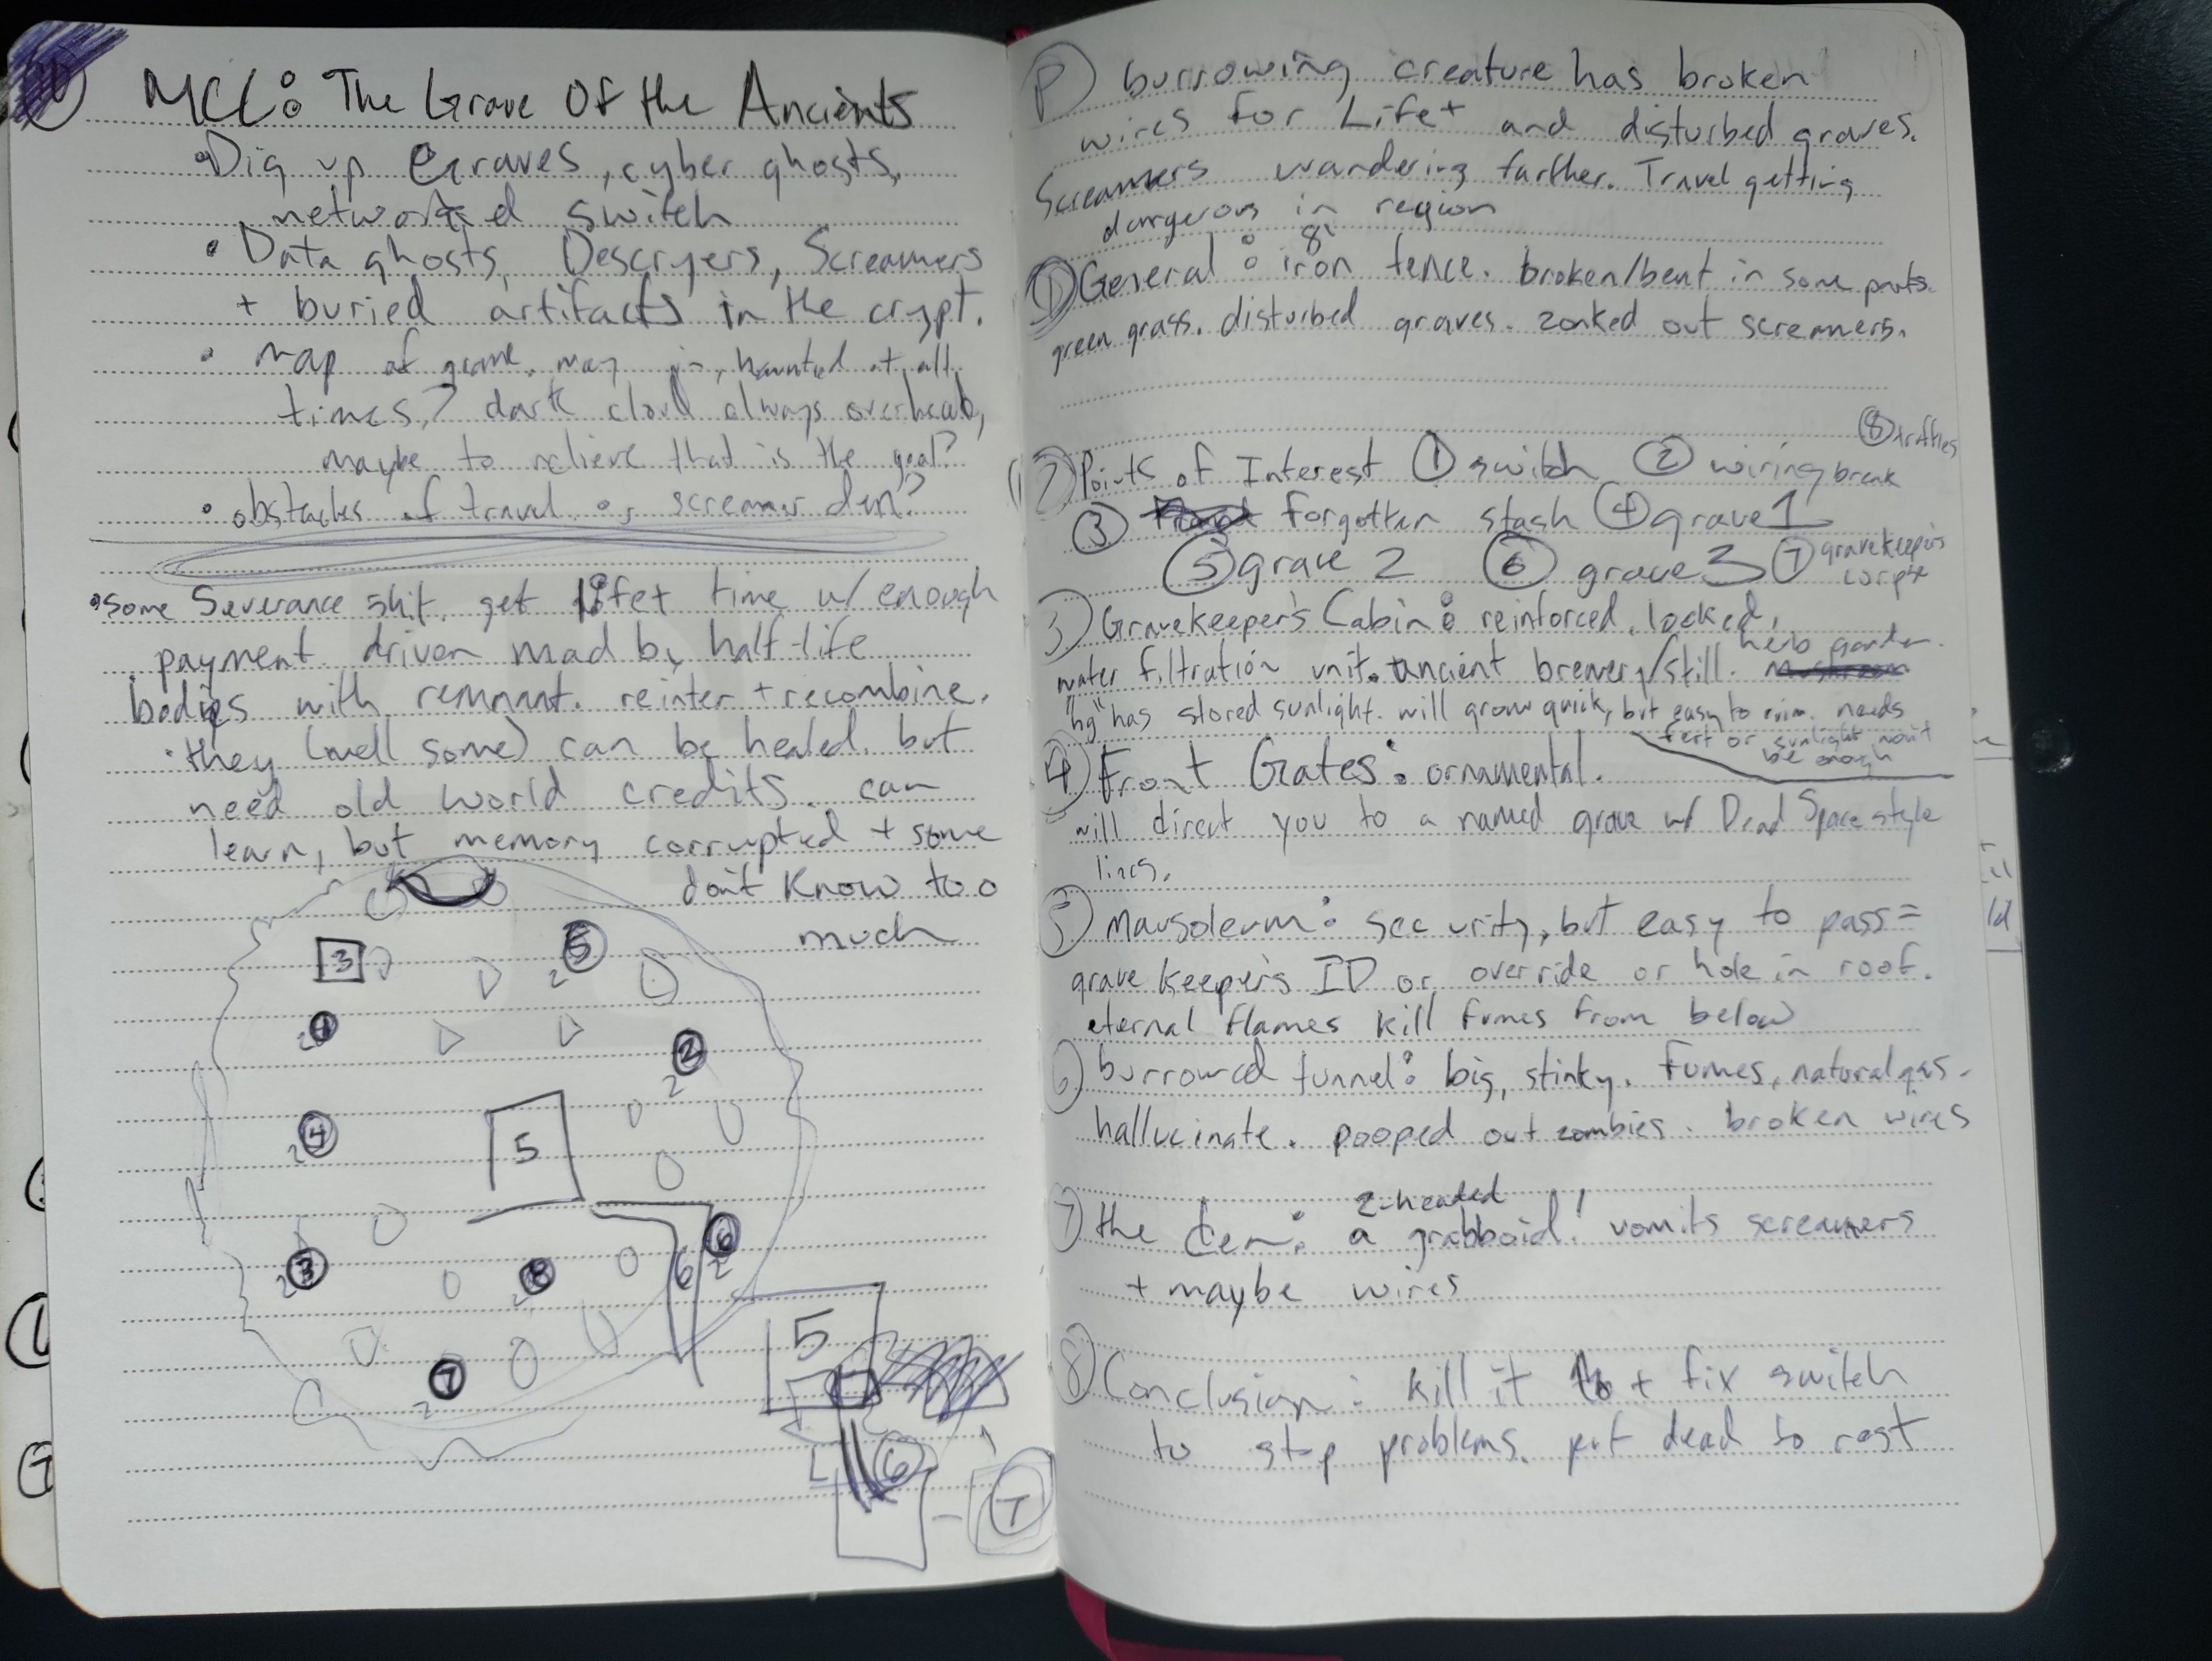 MCC: The Grave Of the Ancients
• Dig up graves, cyber ghosts,
networked switch
• Data ghosts, Descryers, Screamers
+ buried artifacts in the crypt.
• map of game. may, haunted at all
times? dark cloud always overhead,
maybe to relieve that is the goal?
• obstacles of travel or screamer den?
• some Severance shit, get life+ time w/ enough
payment. driven mad by half-life
bodies with remnant. reinter + recombine.
• they (well some) can be healed. but
need old world credits. can
learn, but memory corrupted + some
don't know too
much
3
5
2
1
2
2
2
4
2
5
6
6
2
3
2
8
2
7
2
5
6
7
P burrowing creature has broken
wires for Life+ and disturbed graves.
Screamers wandering farther. Travel getting
dangerous in region
1 General: 8' iron fence. broken/bent in some parts.
green grass. disturbed graves. zonked out screamers.
8 truffles
2 Points of Interest 1 switch 2 wiring break
3 forgotten stash 4 grave 1
5 grave 2 6 grave 3 7 gravekeeper's
corpse
3 Gravekeeper's Cabin: reinforced, locked,
water filtration unit. ancient brewery/still. herb garden.
"hg" has stored sunlight. will grow quick, but easy to ruin. needs
fert or sunlight won't
be enough
4 Front Gates: ornamental.
will direct you to a named grave w/ Dead Space style
lines.
5 mausoleum: security, but easy to pass =
grave keeper's ID or override or hole in roof.
eternal flames kill fumes from below
6 burrowed tunnel: big, stinky. fumes, natural gas.
hallucinate. pooped out zombies. broken wires
7 the den: a 2-headed graboid! vomits screamers
+ maybe wires
8 Conclusion: kill it + fix switch
to stop problems. put dead to rest